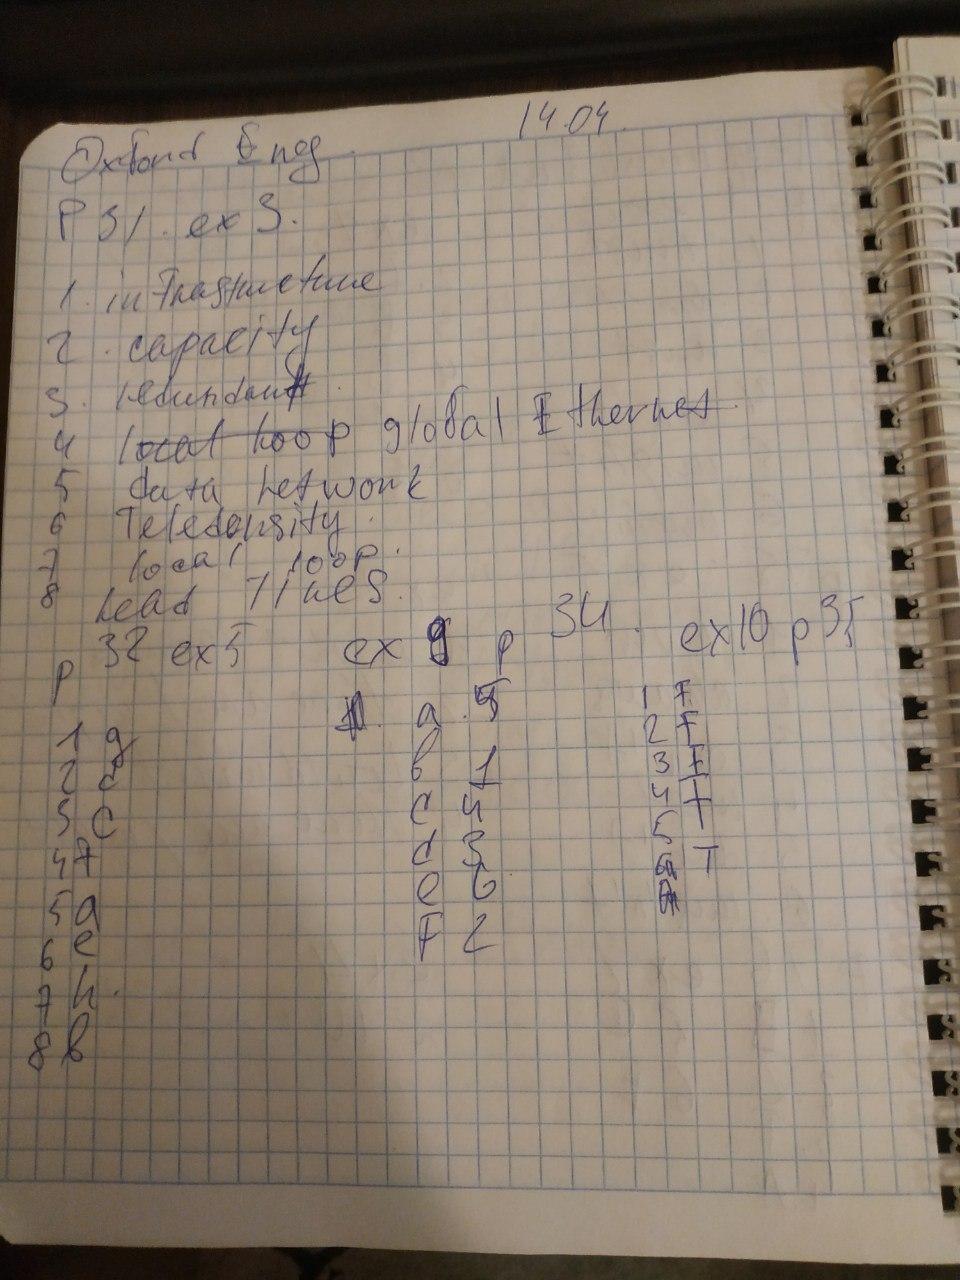 14.04.
Oxford Eng
P 31. ex 3.
1. infrastructure
2. capacity
3. redundant
4 local loop global Ethernet
5 data network
6 Teledensity
7 local loop.
8 lead times.
p 32 ex 5
1 g
2 d
3 c
4 f
5 a
6 e
7 h.
8 b
ex 9 p 34.
a. 5
b 1
c 4
d 3
e 6
F 2
ex 10 p 35
1 F
2 F
3 F
4 T
5 T